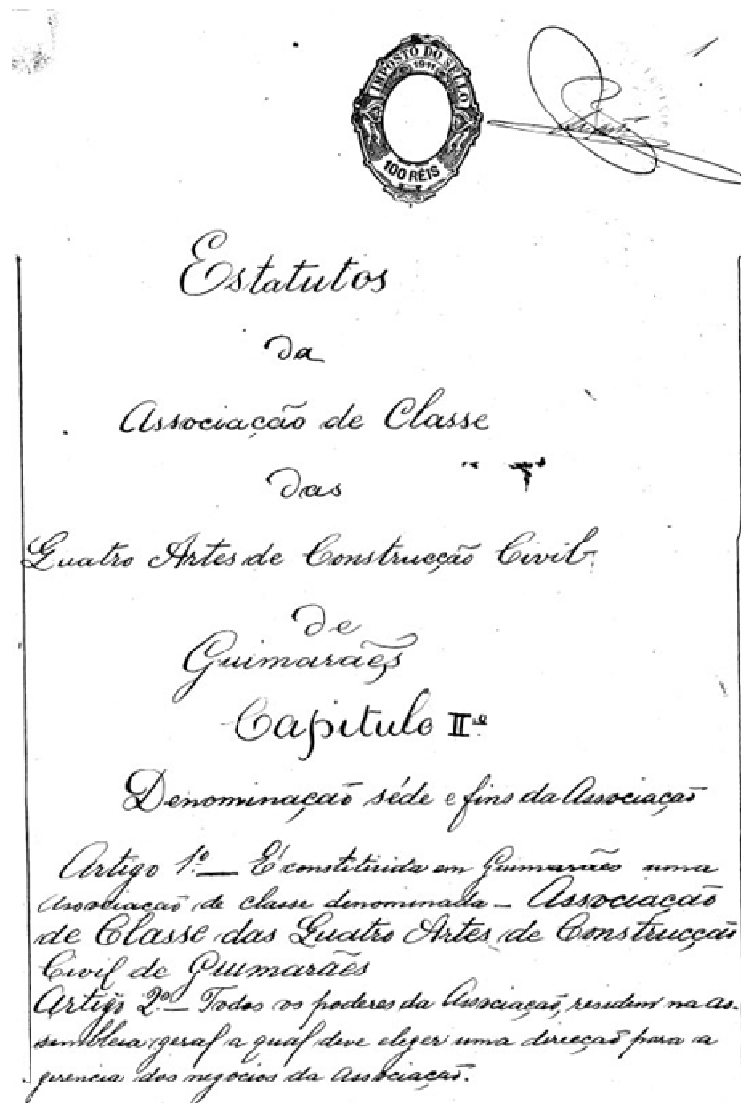 IMPOSTO DO SELLO
1911
100 RÉIS
Estatutos
da
Associação de Classe
das
Quatro Artes de Construcção Civil
de
Guimarães
Capitulo II.º
Denominação séde e fins da Associação
Artigo 1.º — É constituida em Guimarães uma
Associação de classe denominada — Associação
de Classe das Quatro Artes de Construcção
Civil de Guimarães
Artigo 2.º — Todos os poderes da Associação, residem na as-
sembleia geral a qual deve eleger uma direcção para a
gerencia dos negocios da Associação.